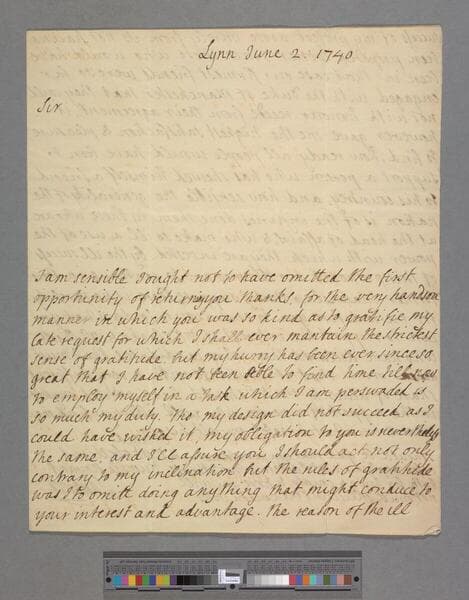 Lynn June 2. 1740
Sir
I am sensible I ought not to have omitted the first
opportunity of returng you thanks, for the very handsom
manner in which you was so kind as to gratifie my
late request for which I shall ever mantain the strictest
sense of gratitude but my hurry has been ever since so
great that I have not been able to find time till now
to employ myself in a task which I am perswaded is
so much my duty. Tho' my design did not succeed as I
could have wished it, my obligation to you is nevertheless
the same, and I'll assure you I should act not only
contrary to my inclination but the rules of gratitude
was I to omitt doing anything that might conduce to
your interest and advantage. the reason of the ill